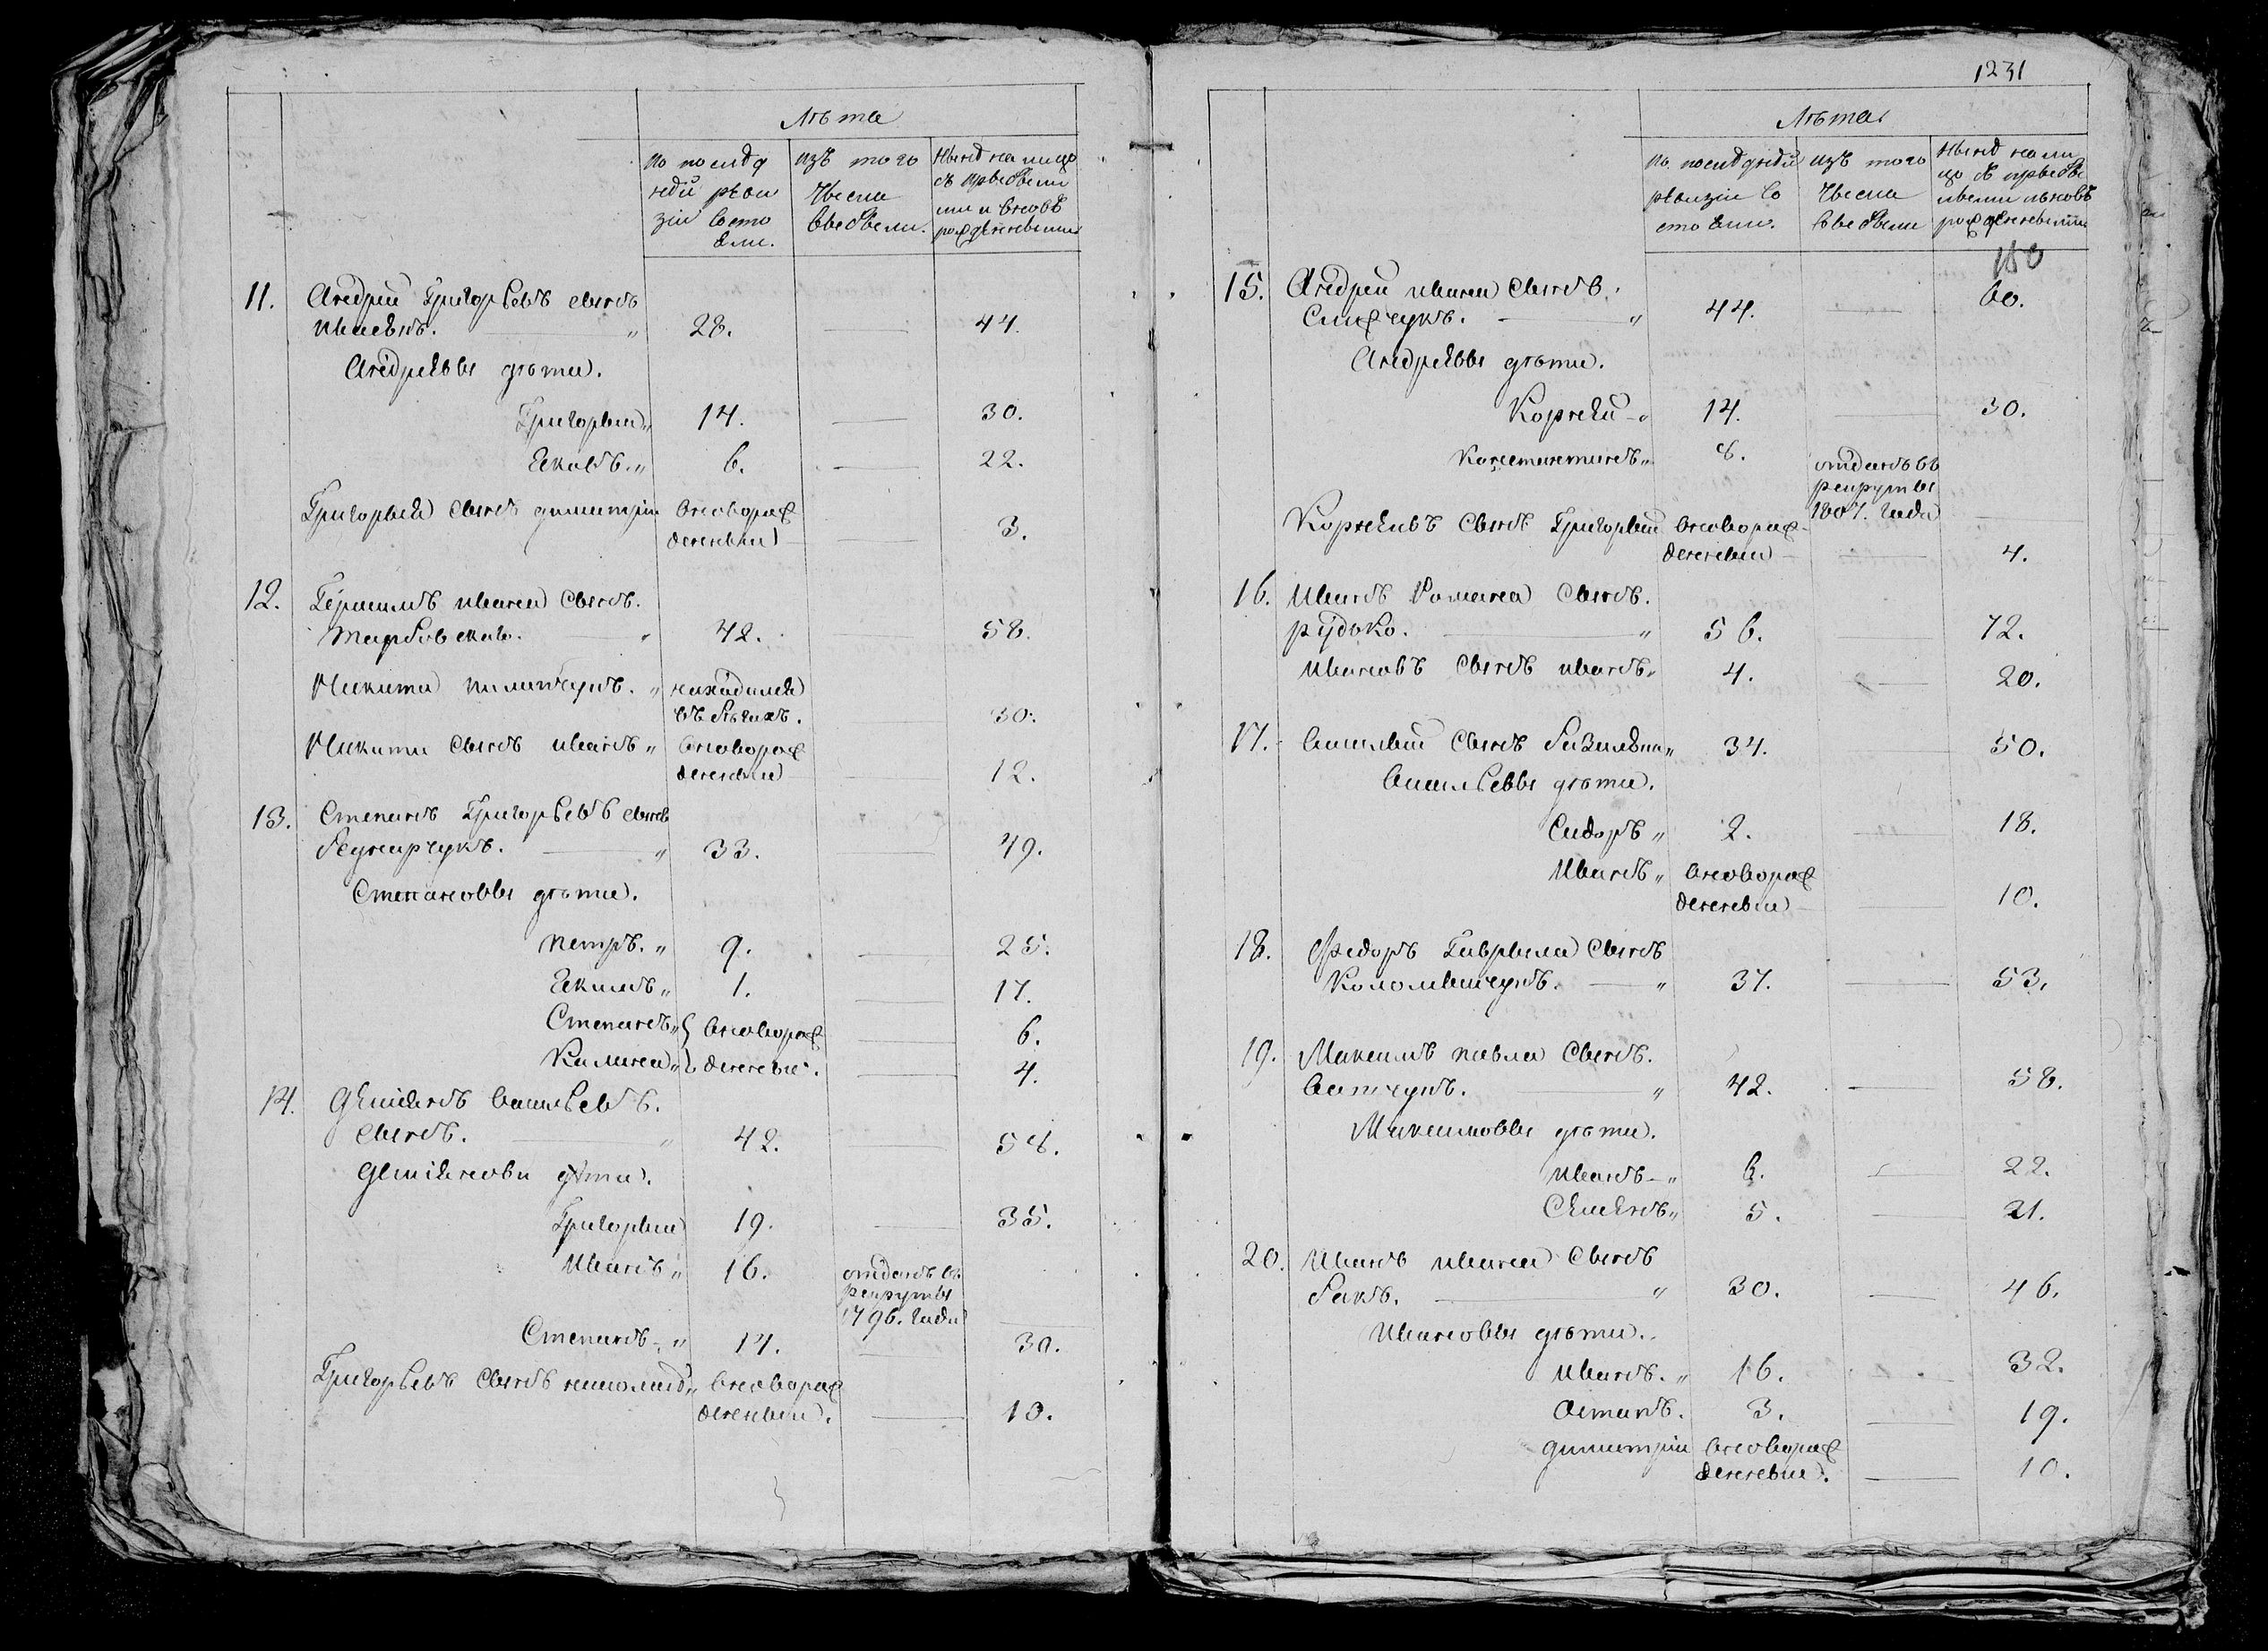 Лѣта
по послѣд
ней реви
зіи состо
яли.
изъ того
числа
выбыли.
нынѣ на лицо
съ прибылы
ми и вновь
рожденными
11. Андрей Григорьевъ сынъ
28. — 44.
Андреевы дѣти.
Григорый „ 14. — 30.
6. — 22.
Григорыя сынъ димитрій вноворож
денный — 3.
12. Герасимъ ивана сынъ.
42. 58.
Никита находился
въ бѣгахъ. — 30.
Никиты сынъ иванъ „ вноворож
денный — 12.
13. Степанъ Григорьевъ сынъ
„ 33. — 49.
Степановы дѣти.
петръ. „ 9. — 25.
1. — 17.
Степанъ „ вноворож — 6.
денные. — 4.
14. Демиянъ Васильевъ.
сынъ. „ 42. — 58.
Демияновы дѣти.
Григорый 19. — 35.
Иванъ „ 16. отданъ въ
рекруты
1796. года —
Степанъ „ 14. — 30.
Григорьевъ сынъ вноворож
денный. — 10.
1231
Лѣта
по послѣдней
ревизіи со
стояли.
изъ того
числа
выбыли
нынѣ на ли
цо съ прибы
лыми и вновь
рожденными
150
15. Андрей ивана сынъ.
„ 44. — 60.
Андреевы дѣти.
Корней „ 14. — 30.
Константинъ „ 8. отданъ въ
рекруты
1807. года —
Корнеивъ сынъ Григорый вноворож
денный — 4.
16. Иванъ Романа сынъ.
рудько. „ 56. — 72.
Ивановъ сынъ иванъ „ 4. — 20.
17. Василый сынъ „ 34. — 50.
Васильевы дѣти.
Сидоръ „ 2. — 18.
Иванъ „ вноворож
денный — 10.
18. Федоръ Гаврыла сынъ
Коломыйчукъ. „ 37. — 53.
19. Максимъ павла сынъ.
„ 42. — 58.
Максимовы дѣти.
иванъ „ 6. — 22.
Семенъ „ 5. — 21.
20. Иванъ ивана сынъ
„ 30. — 46.
Ивановы дѣти.
иванъ. „ 16. 32.
Остапъ. 3. — 19.
димитрій вноворож
денный. — 10.